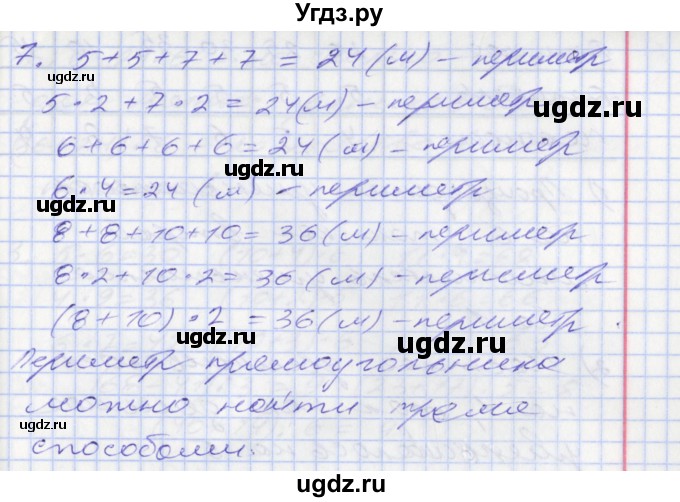 Угдз.ру
7. 5+5+7+7 = 24 (м) – периметр
ugdz.ru ugdz.ru
5·2+7·2=24(м) – периметр
ugdz.ru
6+6+6+6=24 (м) – периметр
ugdz.ru ugdz.ru
6·4=24 (м) – периметр
ugdz.ru ugdz.ru
8+8+10+10=36(м) – периметр
ugdz.ru
8·2+10·2=36 (м) – периметр
ugdz.ru
(8+10)·2=36(м) – периметр
ugdz.ru ugdz.ru
Периметр прямоугольника
можно найти тремя
ugdz.ru
способами.
ugdz.ru
Угдз.ру